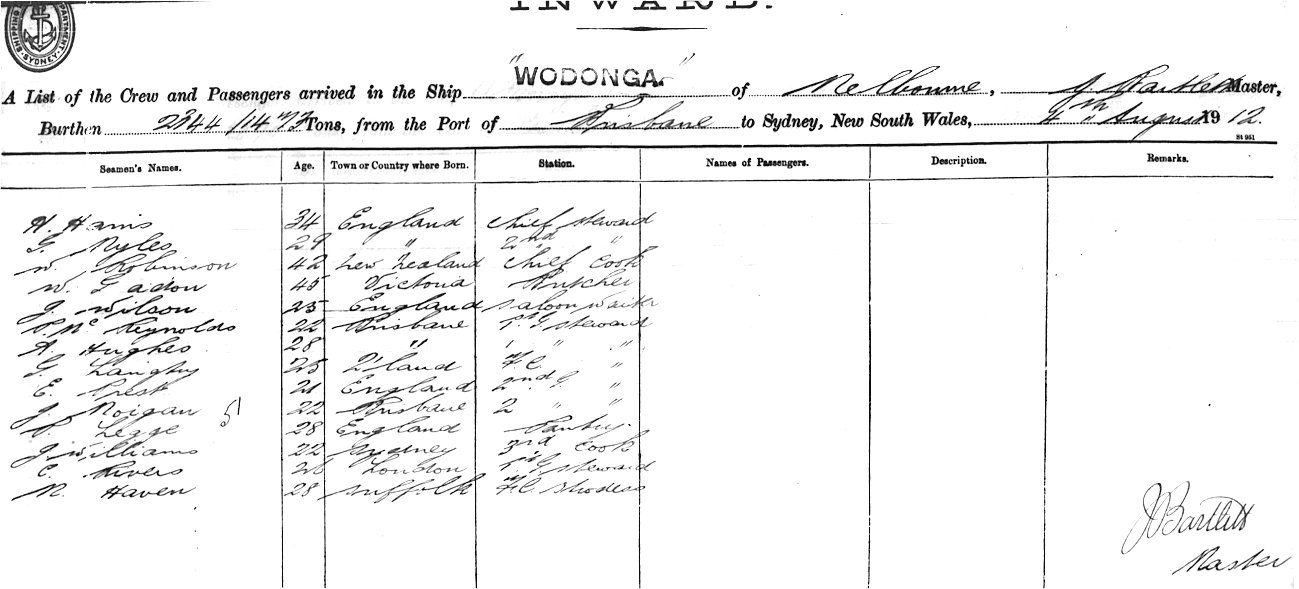 INWARD.
SHIPPING DEPARTMENT. SYDNEY
A List of the Crew and Passengers arrived in the Ship "WODONGA" of Melbourne, J Bartlett Master,
Burthen 2344/1473 Tons, from the Port of Brisbane to Sydney, New South Wales, 4th August 1912.
St 951
Seamen's Names. Age. Town or Country where Born. Station. Names of Passengers. Description. Remarks.
H. Harris 34 England Chief Steward
G. Myles 29 " 2nd "
W. Robinson 42 New Zealand Chief Cook
W. Gadon 45 Victoria Butcher
J. Wilson 25 England Saloon Waiter
P. Mc Reynolds 22 Brisbane Steward
A. Hughes 28 " " "
G. Langby 25 Q'land F.C. "
E. 21 England 2nd S. "
J. Moigan 22 Brisbane 2 " "
51
P. Legge 28 England Pantry
J Williams 22 Sydney 3rd Cook
C. Rivers 26 London Steward
M. Haven 28 Suffolk F.C. Stwdess
J Bartlett
Master